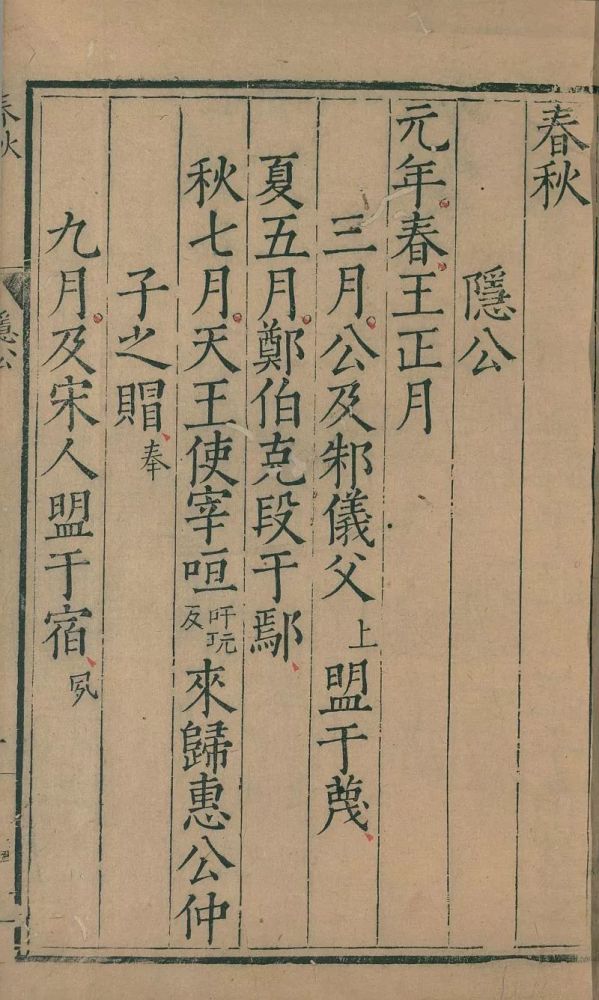 春秋
隱公
元年春王正月
三月公及邾儀父上盟于蔑
夏五月鄭伯克段于鄢
秋七月天王使宰咺吁阮反來歸惠公仲
子之賵奉
九月及宋人盟于宿夙
春秋
隱公